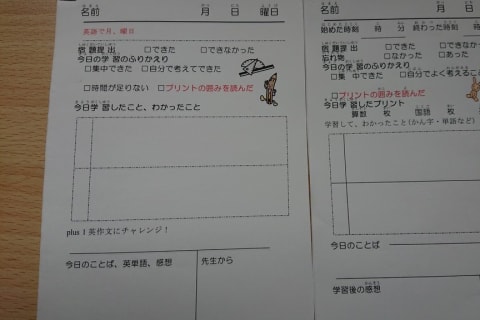 名前 月 日 曜日
英語で月、曜日
宿題提出 □できた □できなかった
今日の学習のふりかえり
□集中できた □自分で考えてできた
□時間が足りない □プリントの囲みを読んだ
今日学習したこと、わかったこと
plus 1 英作文にチャレンジ！
今日のことば、英単語、感想
先生から
名前
始めた時刻 時 分 終わった時刻
宿題提出 □できた □できなかった
忘れ物 □なかった □あった
今日の学習のふりかえり
□集中できた □自分でよく考えるこ
□プリントの囲みを読んだ
今日学習したプリント
算数 枚 国語 枚
学習して、わかったこと(かん字・単語など)
今日のことば
学習後の感想